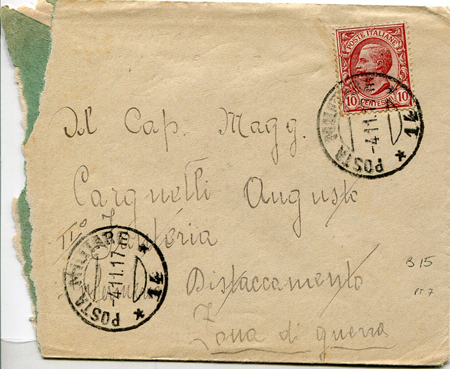 POSTE ITALIANE
10 CENTESIMI 10
POSTA MILITARE
* 41 *
-4.11.17
Al Cap. Magg.
Cargnelli Augusto
II° Fanteria
POSTA MILITARE
* 41 *
-4.11.17
Distaccamento
Zona di guerra
B 15